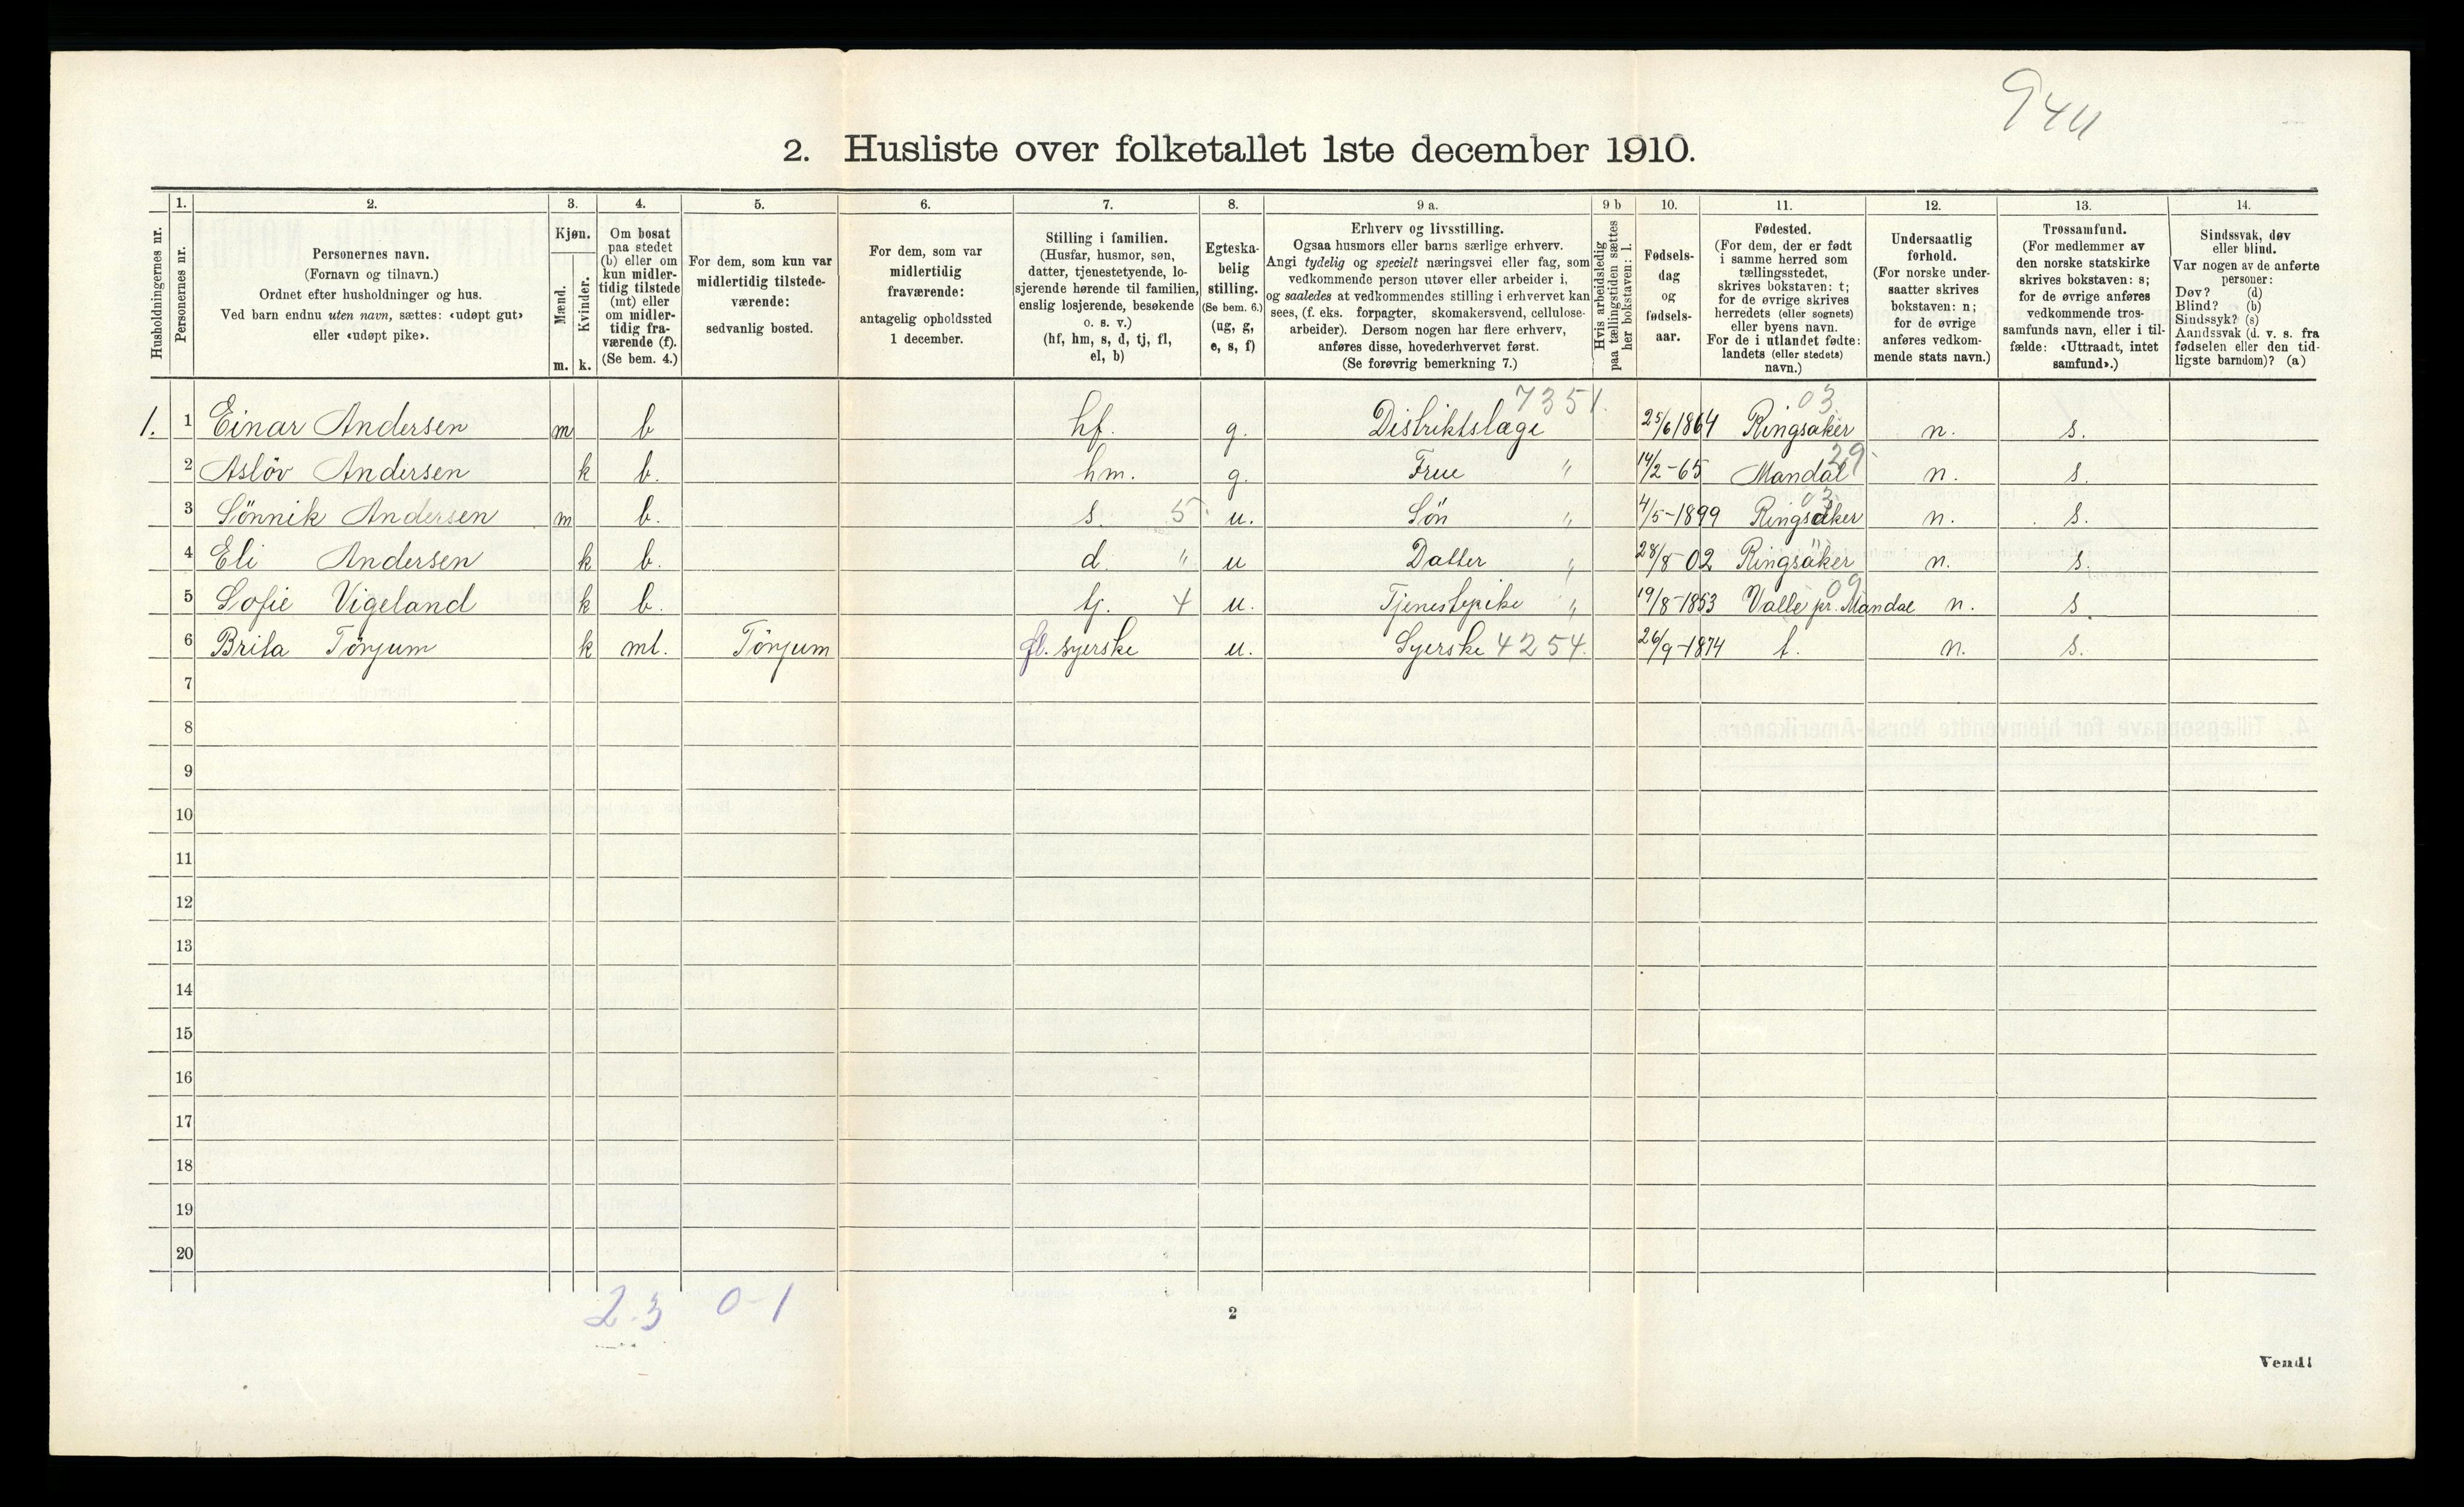 944
2. Husliste over folketallet 1ste december 1910.
Husholdningernes nr.
1.
Personernes nr.
2.
Personernes navn.
(Fornavn og tilnavn.)
Ordnet efter husholdninger og hus.
Ved barn endnu uten navn, sættes: «udøpt gut»
eller «udøpt pike».
3.
Kjøn.
Mænd.
Kvinder.
m. k.
4.
Om bosat
paa stedet
(b) eller om
kun midler-
tidig tilstede
(mt) eller
om midler-
tidig fra-
værende (f).
(Se bem. 4.)
5.
For dem, som kun var
midlertidig tilstede-
værende:
sedvanlig bosted.
6.
For dem, som var
midlertidig
fraværende:
antagelig opholdssted
1 december.
7.
Stilling i familien.
(Husfar, husmor, søn,
datter, tjenestetyende, lo-
sjerende hørende til familien,
enslig losjerende, besøkende
o. s. v.)
(hf, hm, s, d, tj, fl,
el, b)
8.
Egteska-
belig
stilling.
(Se bem. 6.)
(ug, g,
e, s, f)
9 a.
Erhverv og livsstilling.
Ogsaa husmors eller barns særlige erhverv.
Angi tydelig og specielt næringsvei eller fag, som
vedkommende person utøver eller arbeider i,
og saaledes at vedkommendes stilling i erhvervet kan
sees, (f. eks. forpagter, skomakersvend, cellulose-
arbeider). Dersom nogen har flere erhverv,
anføres disse, hovederhvervet først.
(Se forøvrig bemerkning 7.)
9 b
Hvis arbeidsledig
paa tællingstiden sættes
her bokstaven: l.
10.
Fødsels-
dag
og
fødsels-
aar.
11.
Fødested.
(For dem, der er født
i samme herred som
tællingsstedet,
skrives bokstaven: t;
for de øvrige skrives
herredets (eller sognets)
eller byens navn.
For de i utlandet fødte:
landets (eller stedets)
navn.)
12.
Undersaatlig
forhold.
(For norske under-
saatter skrives
bokstaven: n;
for de øvrige
anføres vedkom-
mende stats navn.)
13.
Trossamfund.
(For medlemmer av
den norske statskirke
skrives bokstaven: s;
for de øvrige anføres
vedkommende tros-
samfunds navn, eller i til-
fælde: «Uttraadt, intet
samfund».)
14.
Sindssvak, døv
eller blind.
Var nogen av de anførte
personer:
Døv? (d)
Blind? (b)
Sindssyk? (s)
Aandssvak (d. v. s. fra
fødselen eller den tid-
ligste barndom)? (a)
7351. 03
1. 1 Einar Andersen m b hf. g. Distriktslæge 25/6 1864 Ringsaker n. s.
29
2 Asløv Andersen k b. hm. g. Frue " 14/2-65 Mandal n. s.
03
3 Sönnik Andersen m b. s. 5 u. Sön " 4/5-1899 Ringsaker n. s.
4 Eli Andersen k b. d. " u Datter " 28/8-02 Ringsaker n. s.
09
5 Sofie Vigeland k b. tj. 4 u. Tjenestepike " 19/8-1853 Valle pr. Mandal n. s
6 Brita Tönjum k mt. Tönjum fl. syerske u. Syerske 4254. 26/9-1874 t. n. s.
7
8
9
10
11
12
13
14
15
16
17
18
19
20
2-3 0-1
2
Vend!